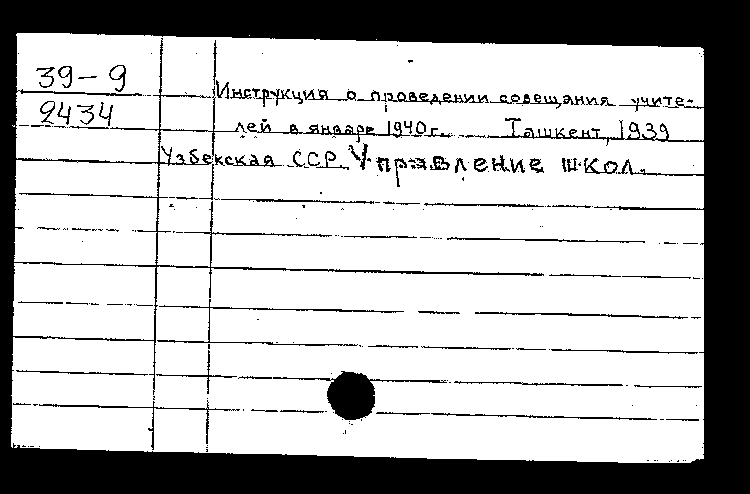 39-9
2434
Инструкция о проведении совещания учите-
лей в январе 1940г. Ташкент, 1939
Узбекская ССР. Управление школ.